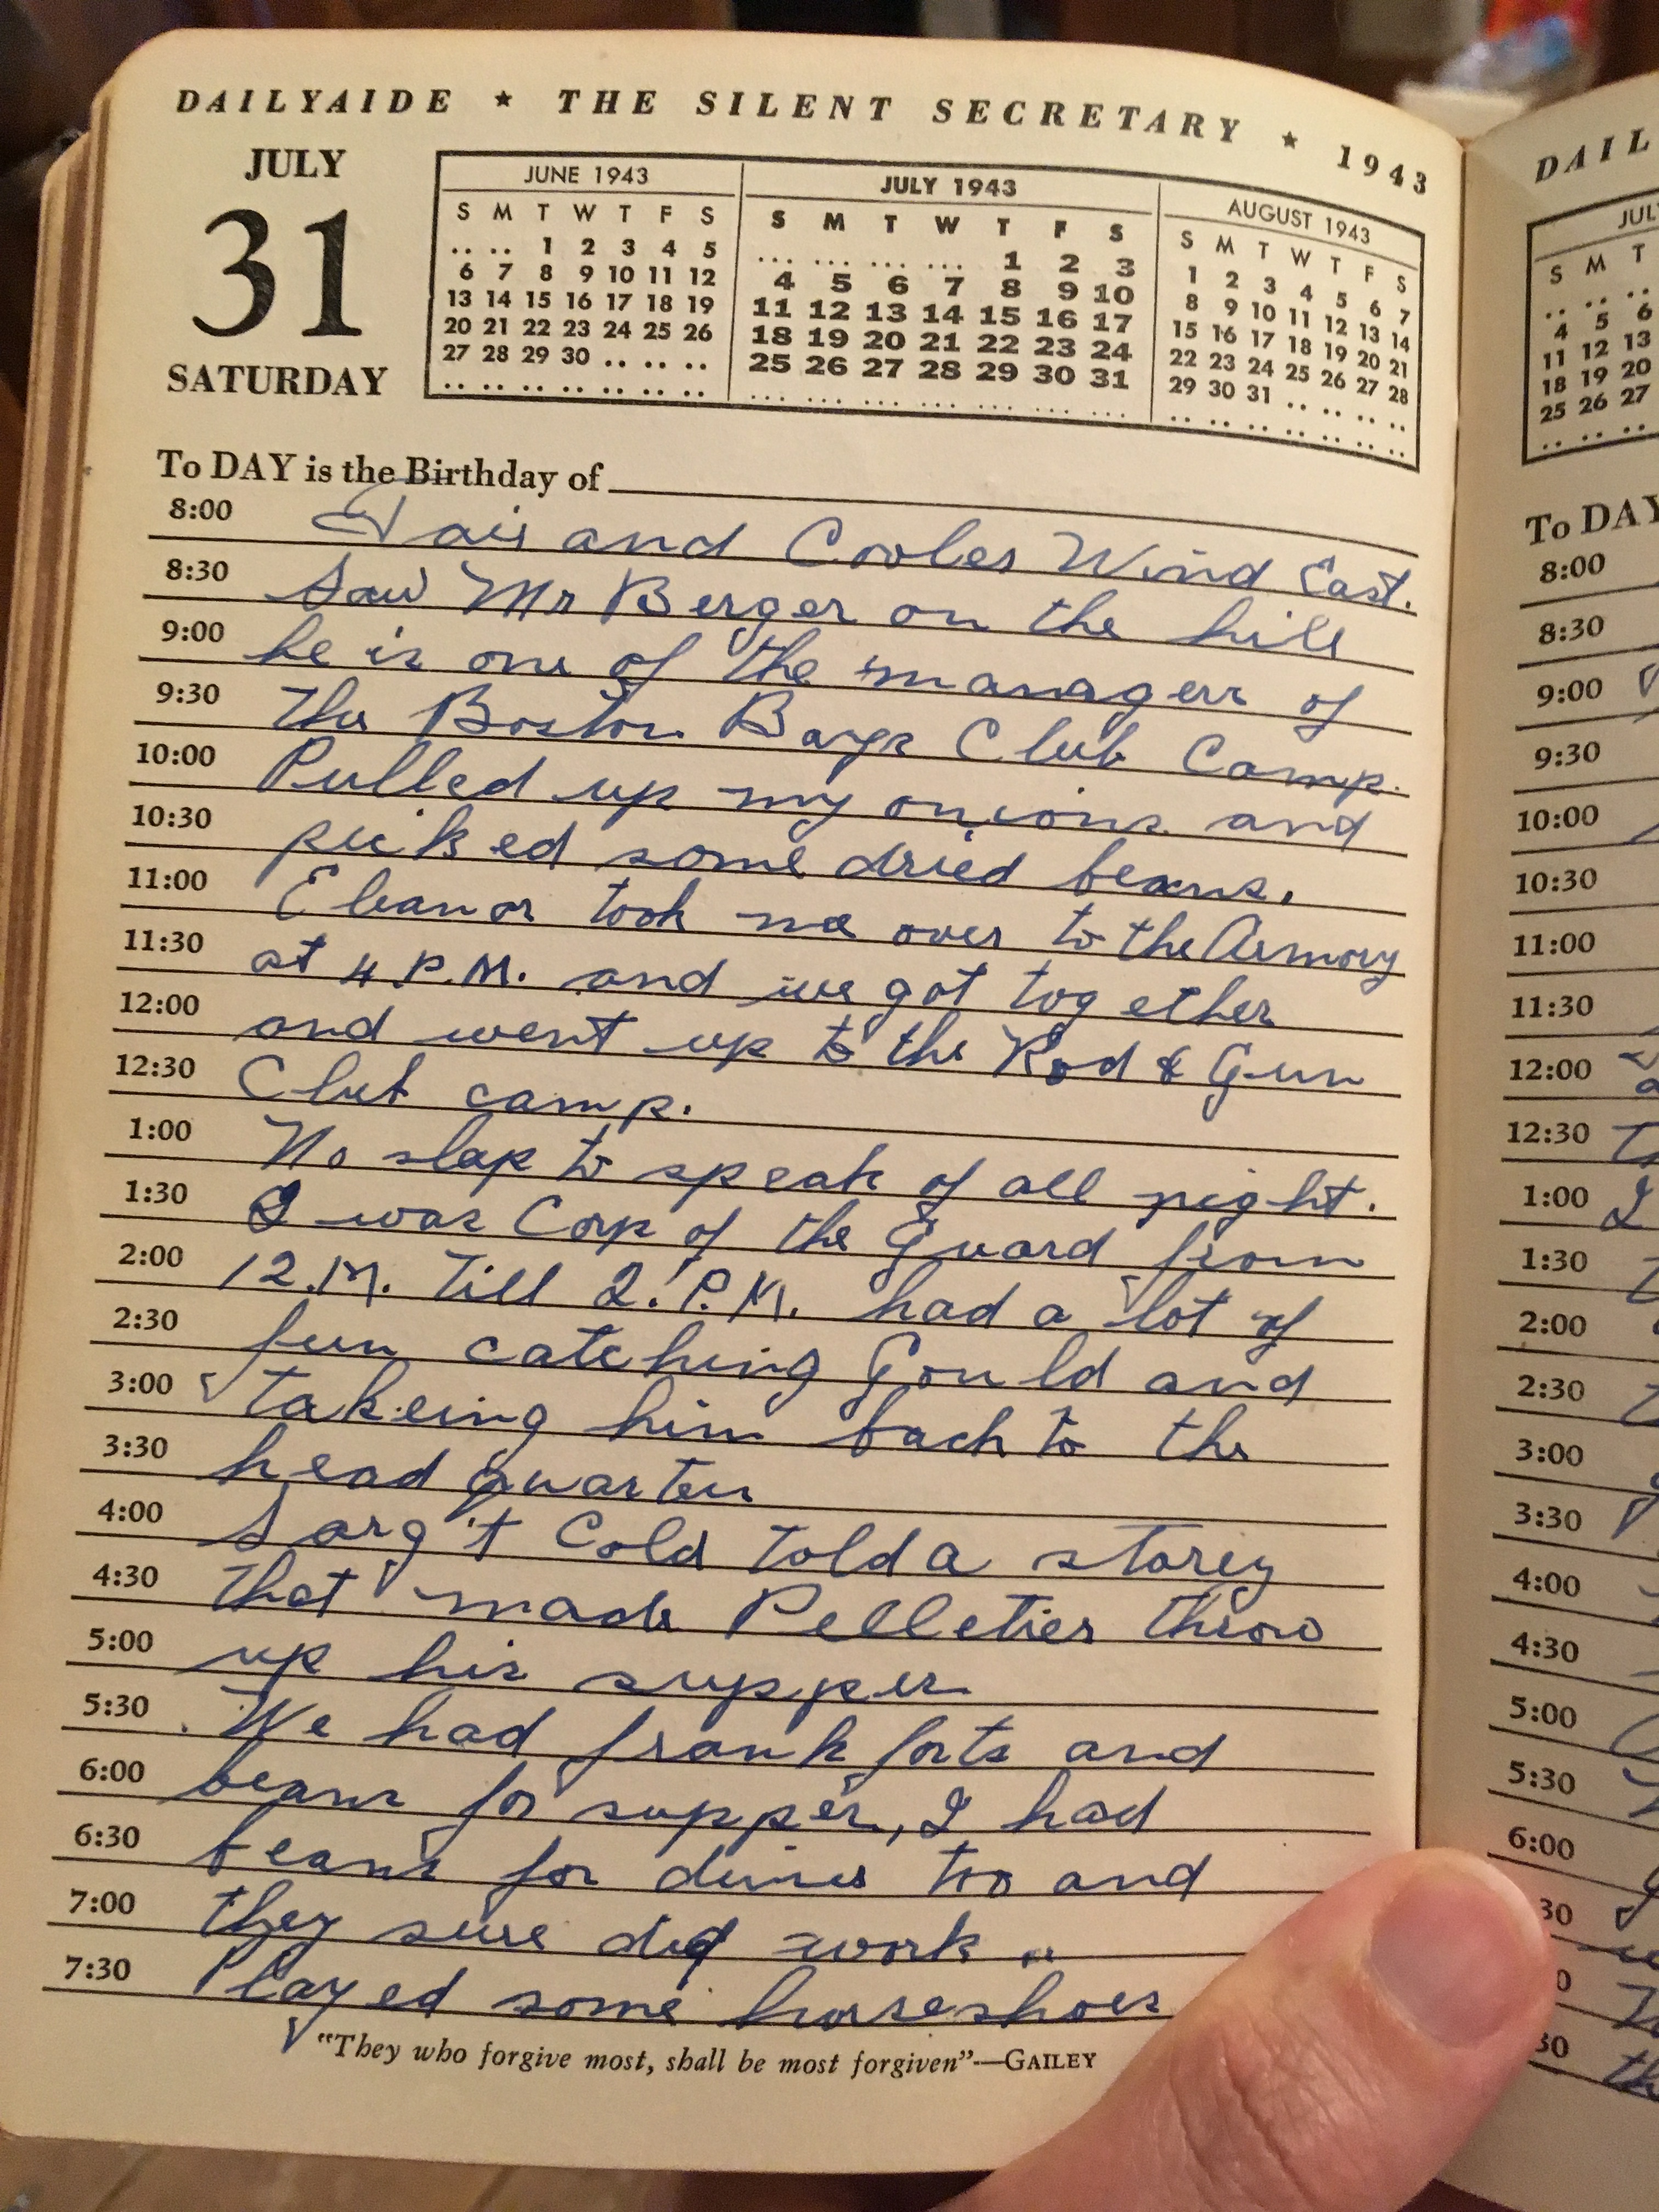 DAILYAIDE ★ THE SILENT SECRETARY ★ 1943
JULY
31
SATURDAY
JUNE 1943
S M T W T F S
.. .. 1 2 3 4 5
6 7 8 9 10 11 12
13 14 15 16 17 18 19
20 21 22 23 24 25 26
27 28 29 30 .. .. ..
.. .. .. .. .. .. ..
JULY 1943
S M T W T F S
... ... ... ... 1 2 3
4 5 6 7 8 9 10
11 12 13 14 15 16 17
18 19 20 21 22 23 24
25 26 27 28 29 30 31
... ... ... ... ... ... ...
AUGUST 1943
S M T W T F S
1 2 3 4 5 6 7
8 9 10 11 12 13 14
15 16 17 18 19 20 21
22 23 24 25 26 27 28
29 30 31 .. .. .. ..
.. .. .. .. .. .. ..
To DAY is the Birthday of
8:00 Fair and Cooler Wind East.
8:30 Saw Mr Berger on the hill
9:00 he is one of the managers of
9:30 the Boston Boys Club Camp.
10:00 Pulled up my onions and
10:30 picked some dried beans.
11:00 Eleanor took me over to the Armory
11:30 at 4 P.M. and we got together
12:00 and went up to the Rod & Gun
12:30 Club camp.
1:00 No slep to speak of all night.
1:30 I was Corp of the Guard from
2:00 12.M. till 2.P.M. had a lot of
2:30 fun catching Gould and
3:00 takeing him back to the
3:30 head quarters
4:00 Sarg't Cold told a storey
4:30 that made Pelletier throw
5:00 up his supper
5:30 We had frankforts and
6:00 beans for supper, I had
6:30 beans for diner too and
7:00 they sure did work ..
7:30 Played some horseshoes
"They who forgive most, shall be most forgiven"—GAILEY
DAIL
JUL
S M T
.. .. ..
4 5 6
11 12 13
18 19 20
25 26 27
.. .. ..
To DAY
8:00
8:30
9:00
9:30
10:00
10:30
11:00
11:30
12:00
12:30
1:00 I
1:30
2:00
2:30
3:00
3:30
4:00
4:30
5:00
5:30
6:00
30
0
30